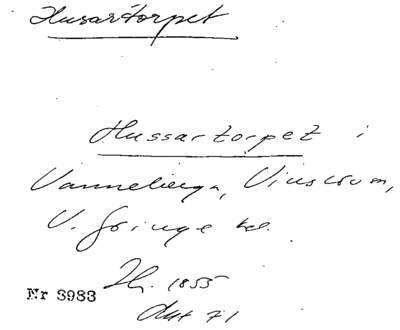 Husartorpet
Hussartorpet i
Vanneberga, Vinslövm,
V. Göinge hd.
Hf. 1855
Akt 71
Nr 8983